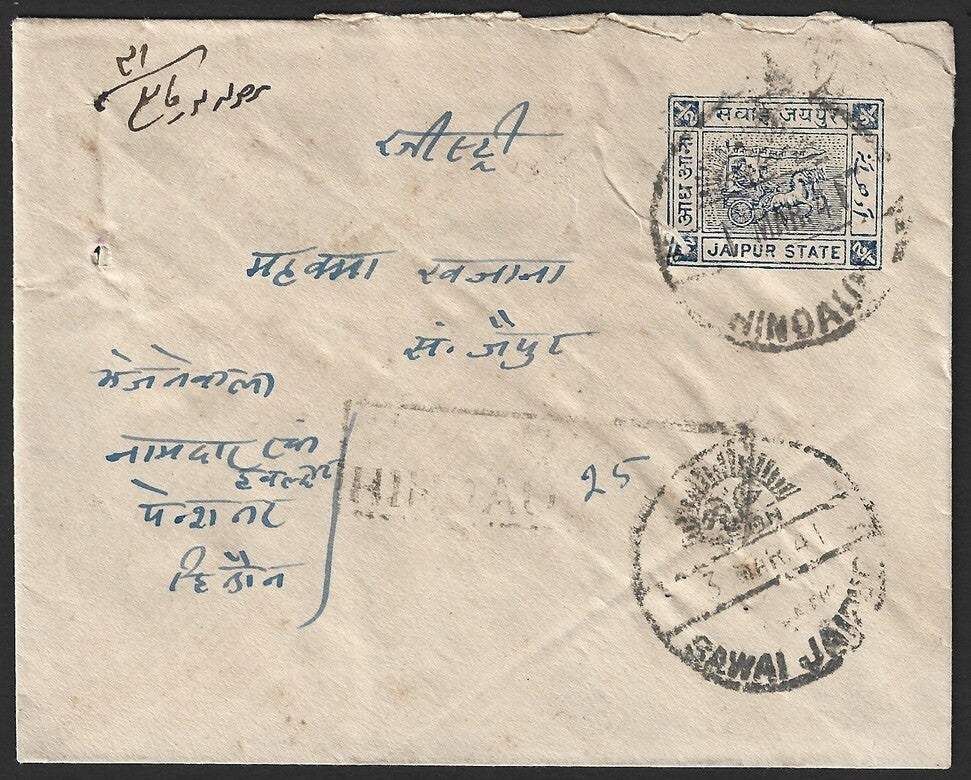 रजीस्ट्री
सवाई जयपुर
आध आना
JAIPUR STATE
MAR 41
HINDAUN
महकमा खजाना
सं. जैपुर
भेजनेवाला
नामदार खां
हवलदार
पेन्शनर
हिंडौन
25
HINDAU
3 MAR 41
SAWAI JAIPUR